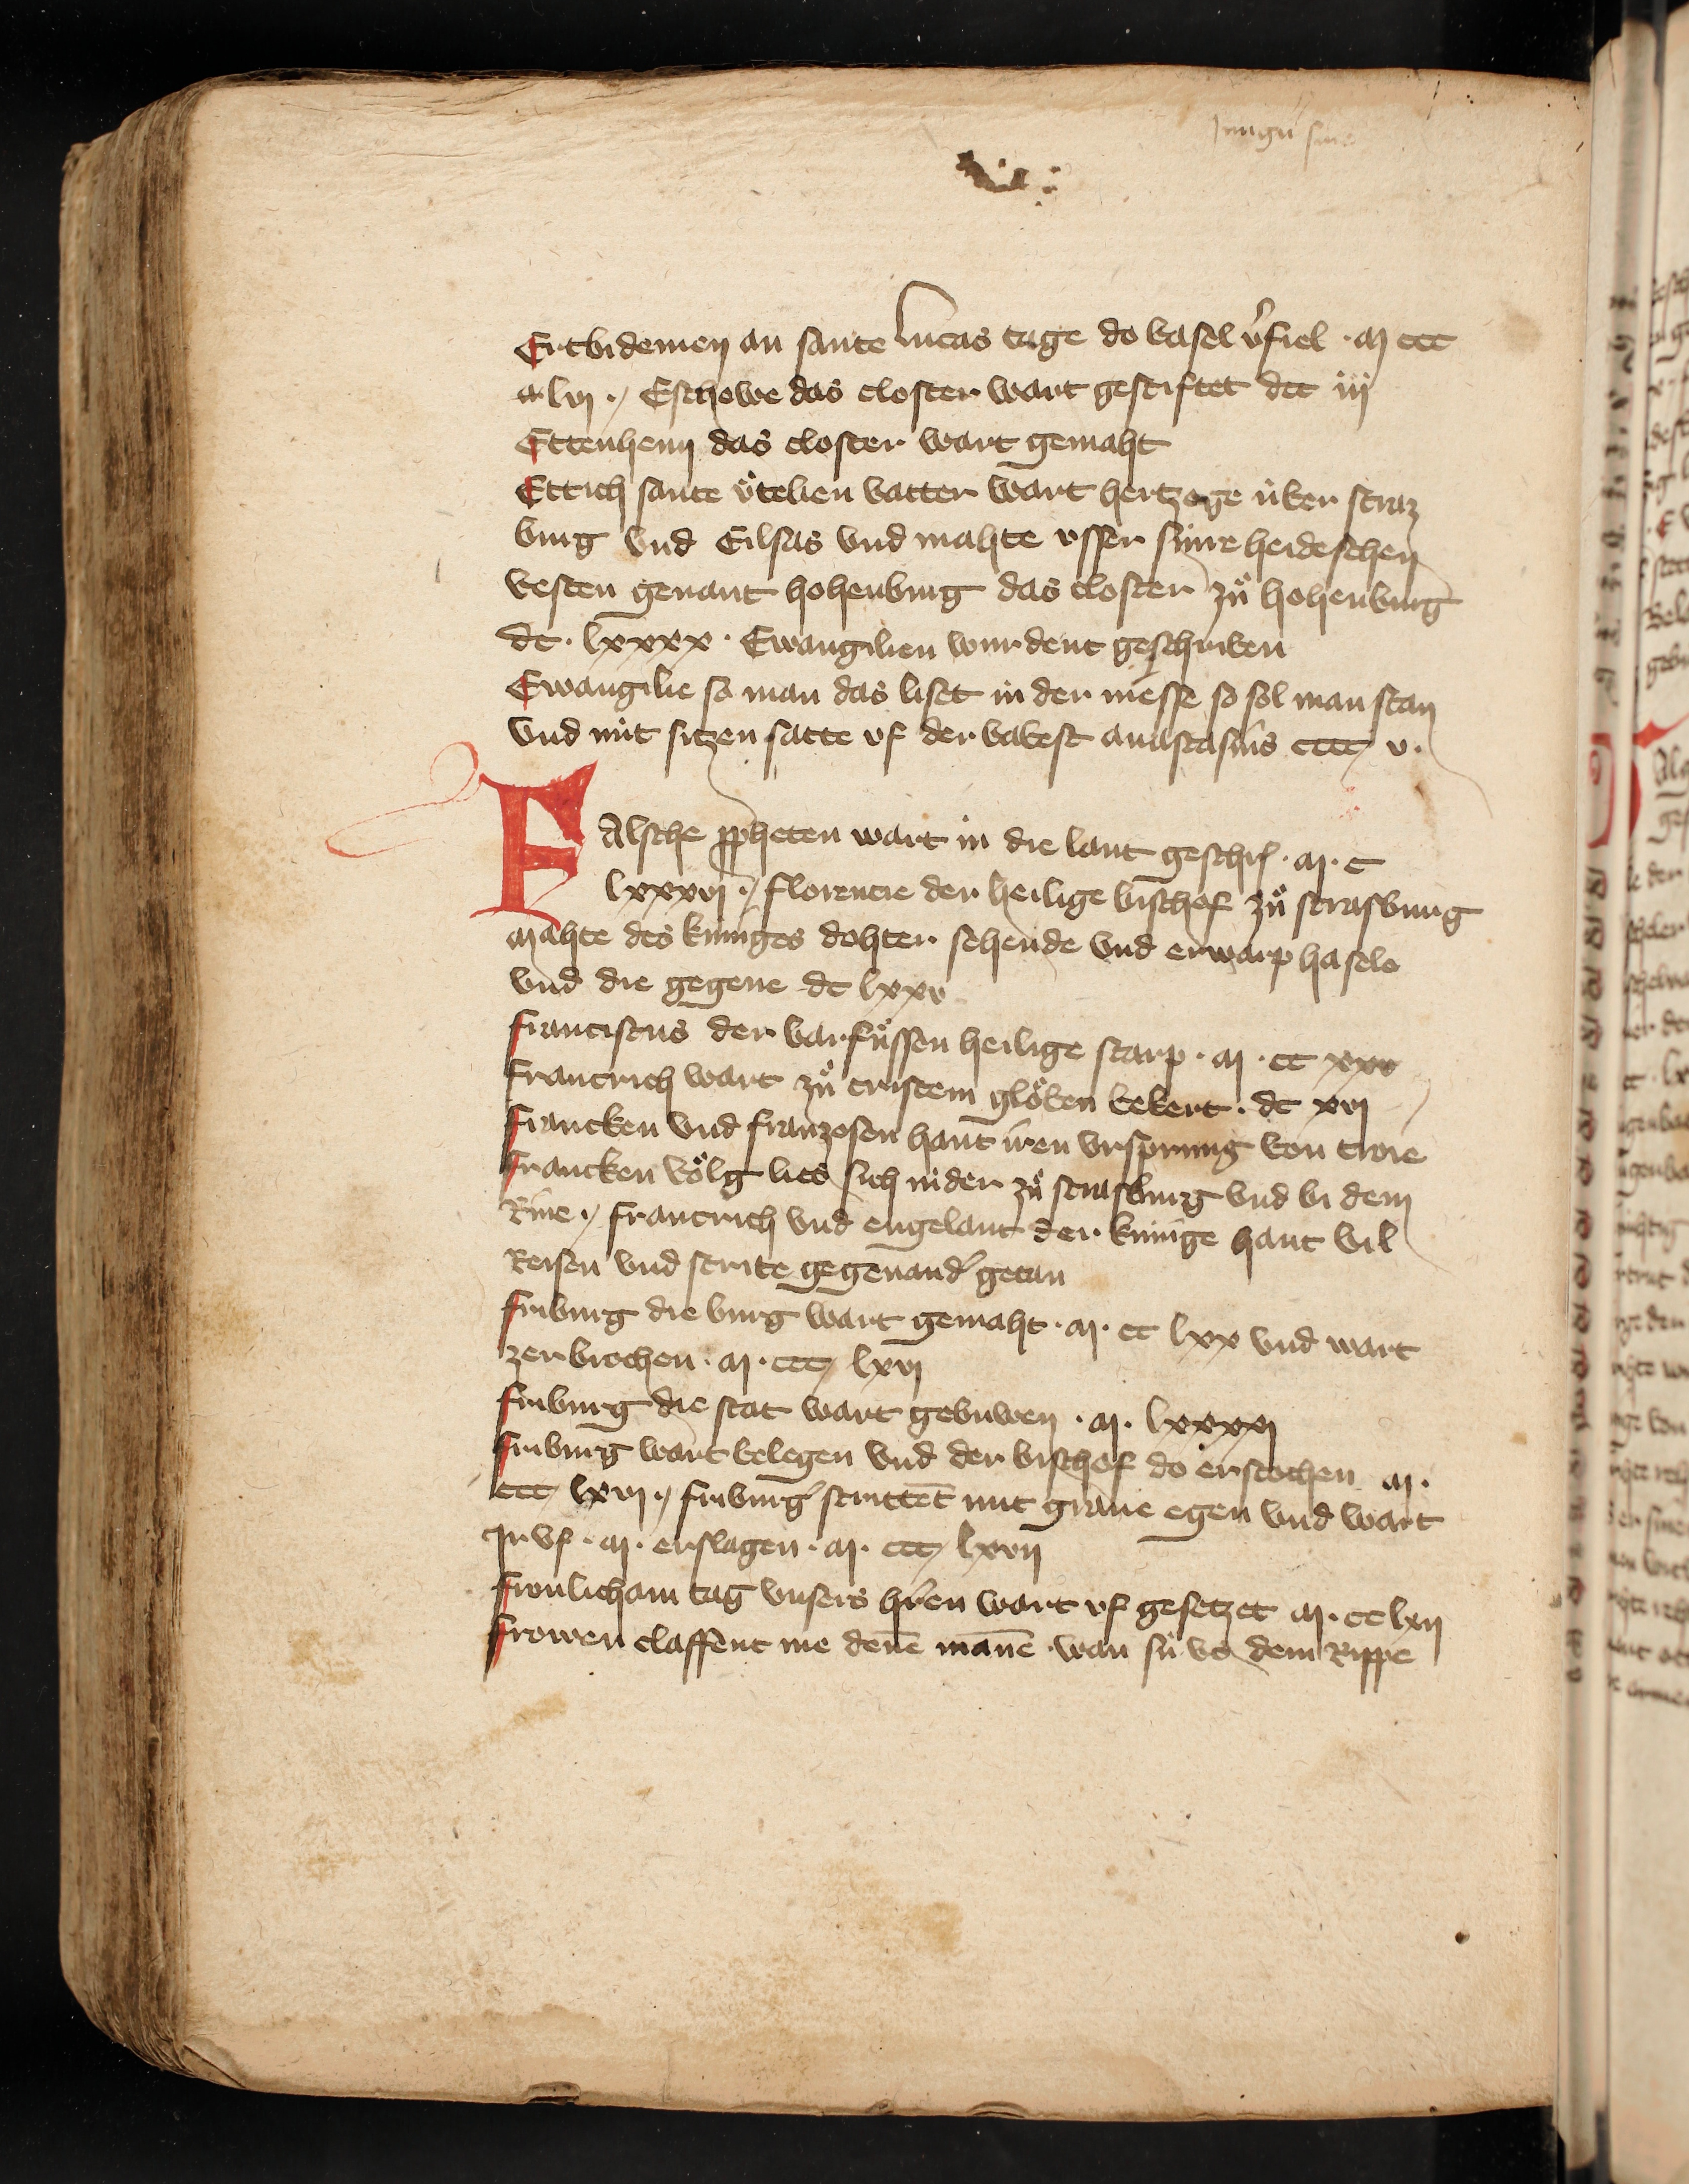 Ertbidemen an sante Lucas tage do basel v'fiel · M ccc
lvj · / Eschowe das closter wart gestiftet dcc iij
Ettenheim das closter wart gemaht
Ettich sante Otelien vatter wart hertzoge über straz
burg vnd Eilsas vnd mahte vsser sinre heideschen
vesten genant hohenburg das closter zů hohenburg
dc · lxxxx · Ewangilien wurdent geschriben
Ewangilie so man das liset in der messe so sol man stan
vnd nüt sitzen satte vf der babest anastasius cccc v ·
FAlsche ppheten wart in die lant geschr · M · c
lxxxvj · / florencie der heilige bischof zů strasburg
Mahte des küniges dohter sehende vnd erwarp hasele
vnd die gegene dc lxxv
franciscus der barfůssen heilige starp · M · cc xxv
francrich wart zů cristem glöben bekert · dc xvj
francken vnd franzosen hant iren vrsprung von troie
francken völg lies sich nider zů strasburg vnd bi dem
Rine · / francrich vnd engelant der künige hant vil
Reisen vnd strite gegenand' getan
friburg die burg wart gemaht · M · cc lxx vnd wart
zerbrochen · M · ccc lxvj
friburg die stat wart gebuwen · M · lxxxxj
friburg wart belegen vnd der bischof do erstochen M ·
ccc lxvj · / friburg' strittet mit grave egen vnd wart
Jr vf · M · erslagen · M · ccc lxvij
fronlicham tag vnsers h'ren wart vf gesetzet M · cc lxij
frowen claffent me denē manē wan sü vs dem Rippe